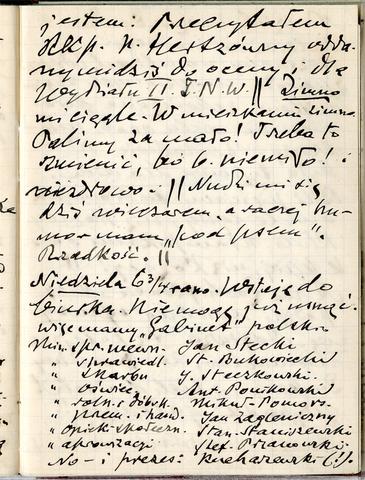 jestem: Przeczytałem
ręk. p. H. Hertzówny odda-
ny mi dziś do oceny dla
Wydziału II T.N.W. || Zimno
mi ciągle. W mieszkaniu zimno.
Palimy za mało! Trzeba to
zmienić, bo b. niemiło! i
niezdrowo. || Nudzi mi się
dziś wieczorem, a raczej hu-
mor mam „pod psem".
Rzadkość. ||
Niedziela 6 3/4 rano. Wstaję do
biurka. Nie mogę już usnąć.
więc mamy „Gabinet" polski.
Min. spr. wewn. Jan Stecki
" sprawiedl. St. Bukowiecki
" skarbu J. Steczkowski.
" oświec. Ant. Ponikowski
" roln. i dóbr k. Mikuł. Pomors.
" przem. i hand. Jan Zagleniczny
" opieki społeczn. Stan. Staniszewski
" aprowizacji Stef. Przanowski.
No - i prezes: Kucharzewski (!).